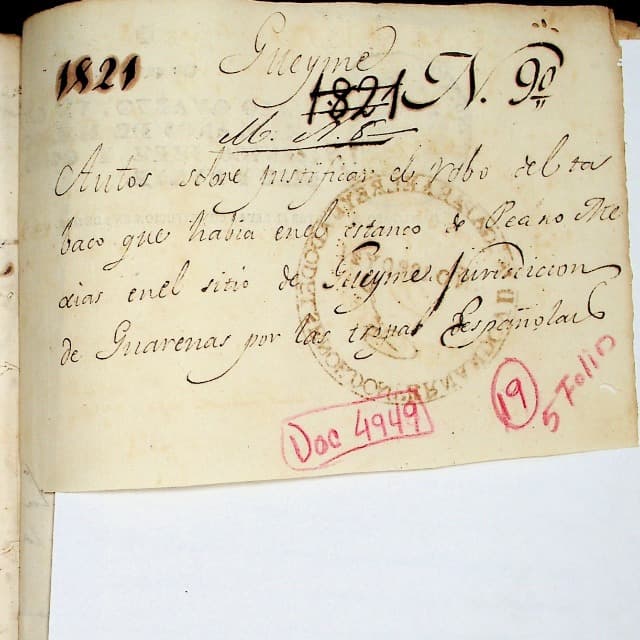 Gueyme
1821
1821 N. 90
M. N. 6
Autos sobre justificar el robo del ta
baco que habia en el estanco de Me
xias en el sitio de Gueyme Jurisdicion
de Guarenas por las tropas Españolas
Doc 4949
19
5 Folio